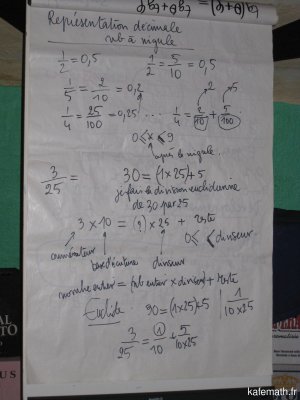 Représentation décimale
nb à virgule
1/2 = 0,5 1/2 = 5/10 = 0,5
1/5 = 2/10 = 0,2
1/4 = 25/100 = 0,25 ... 1/4 = 2/10 + 5/100
2 5
0 ≤ x ≤ 9
après la virgule.
3/25 = 30 = (1x25)+5
je fais la division euclidienne
de 30 par 25
3 x 10 = (?) x 25 + reste
0 ≤ < diviseur.
numérateur base d'écriture diviseur
nombre entier = (nb entier x diviseur) + reste
Euclide 30 = (1x25)+5 | 1/10x25
3/25 = 1/10 + 5/10x25
kafemath.fr